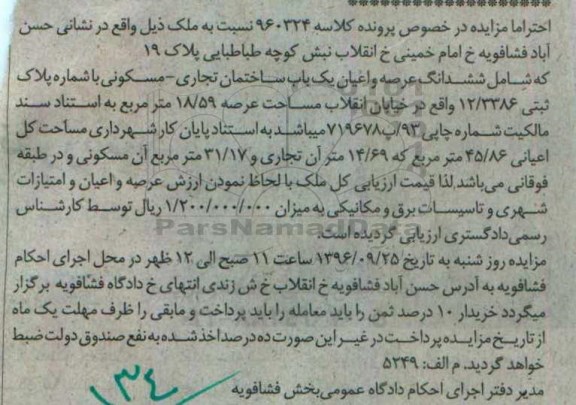 احتراما مزایده در خصوص پرونده کلاسه ۹۶۰۳۲۴ نسبت به ملک ذیل واقع در نشانی حسن
آباد فشافویه خ امام خمینی خ انقلاب نبش کوچه طباطبایی پلاک ۱۹
که شامل ششدانگ عرصه و اعیان یک باب ساختمان تجاری-مسکونی با شماره پلاک
ثبتی ۱۲/۳۳۸۶ واقع در خیابان انقلاب مساحت عرصه ۱۸/۵۹ متر مربع به استناد سند
مالکیت شماره چاپی ۹۳/ب۷۱۹۶۷۸ میباشد به استناد پایان کار شهرداری مساحت کل
اعیانی ۴۵/۸۶ متر مربع که ۱۴/۶۹ متر آن تجاری و ۳۱/۱۷ متر مربع آن مسکونی و در طبقه
فوقانی می‌باشد.لذا قیمت ارزیابی کل ملک با لحاظ نمودن ارزش عرصه و اعیان و امتیازات
شهری و تاسیسات برق و مکانیکی به میزان ۱/۲۰۰/۰۰۰/۰۰۰ ریال توسط کارشناس
رسمی دادگستری ارزیابی گردیده است.
ParsNamadData
مزایده روز شنبه به تاریخ ۱۳۹۶/۰۹/۲۵ ساعت ۱۱ صبح الی ۱۲ ظهر در محل اجرای احکام
فشافویه به آدرس حسن آباد فشافویه خ انقلاب خ ش زندی انتهای خ دادگاه فشافویه برگزار
میگردد خریدار ۱۰ درصد ثمن را باید معامله را باید پرداخت و مابقی را ظرف مهلت یک ماه
از تاریخ مزایده پرداخت در غیر این صورت ده درصد اخذ شده به نفع صندوق دولت ضبط
خواهد گردید. م الف: ۵۲۴۹
مدیر دفتر اجرای احکام دادگاه عمومی بخش فشافویه
۱۳۴